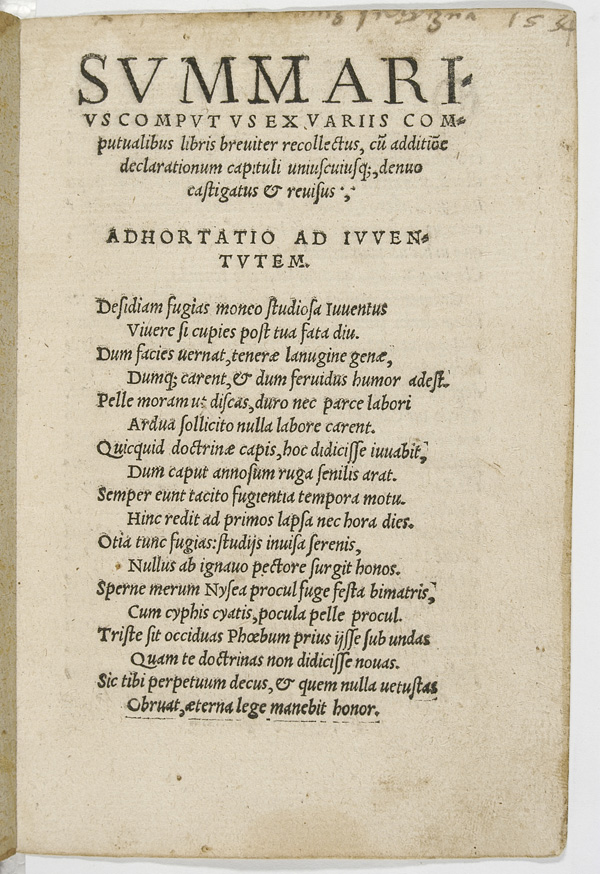 1534
SVMMARI-
VS COMPVTVS EX VARIIS COM-
putualibus libris breuiter recollectus, cũ additiõe
declarationum capituli uniuscuiusq;, denuo
castigatus & reuisus ∵,
ADHORTATIO AD IVVEN-
TVTEM.
Desidiam fugias moneo studiosa Iuuentus
Viuere si cupies post tua fata diu.
Dum facies uernat, teneræ lanugine genæ,
Dumq; carent, & dum feruidus humor adest.
Pelle moram ut discas, duro nec parce labori
Ardua sollicito nulla labore carent.
Quicquid doctrinæ capis, hoc didicisse iuuabit,
Dum caput annosum ruga senilis arat.
Semper eunt tacito fugientia tempora motu.
Hinc redit ad primos lapsa nec hora dies.
Otia tunc fugias: studijs inuisa serenis,
Nullus ab ignauo pectore surgit honos.
Sperne merum Nysea procul fuge festa bimatris,
Cum cyphis cyatis, pocula pelle procul.
Triste sit occiduas Phœbum prius ijsse sub undas
Quam te doctrinas non didicisse nouas.
Sic tibi perpetuum decus, & quem nulla uetustas
Obruat, æterna lege manebit honor.